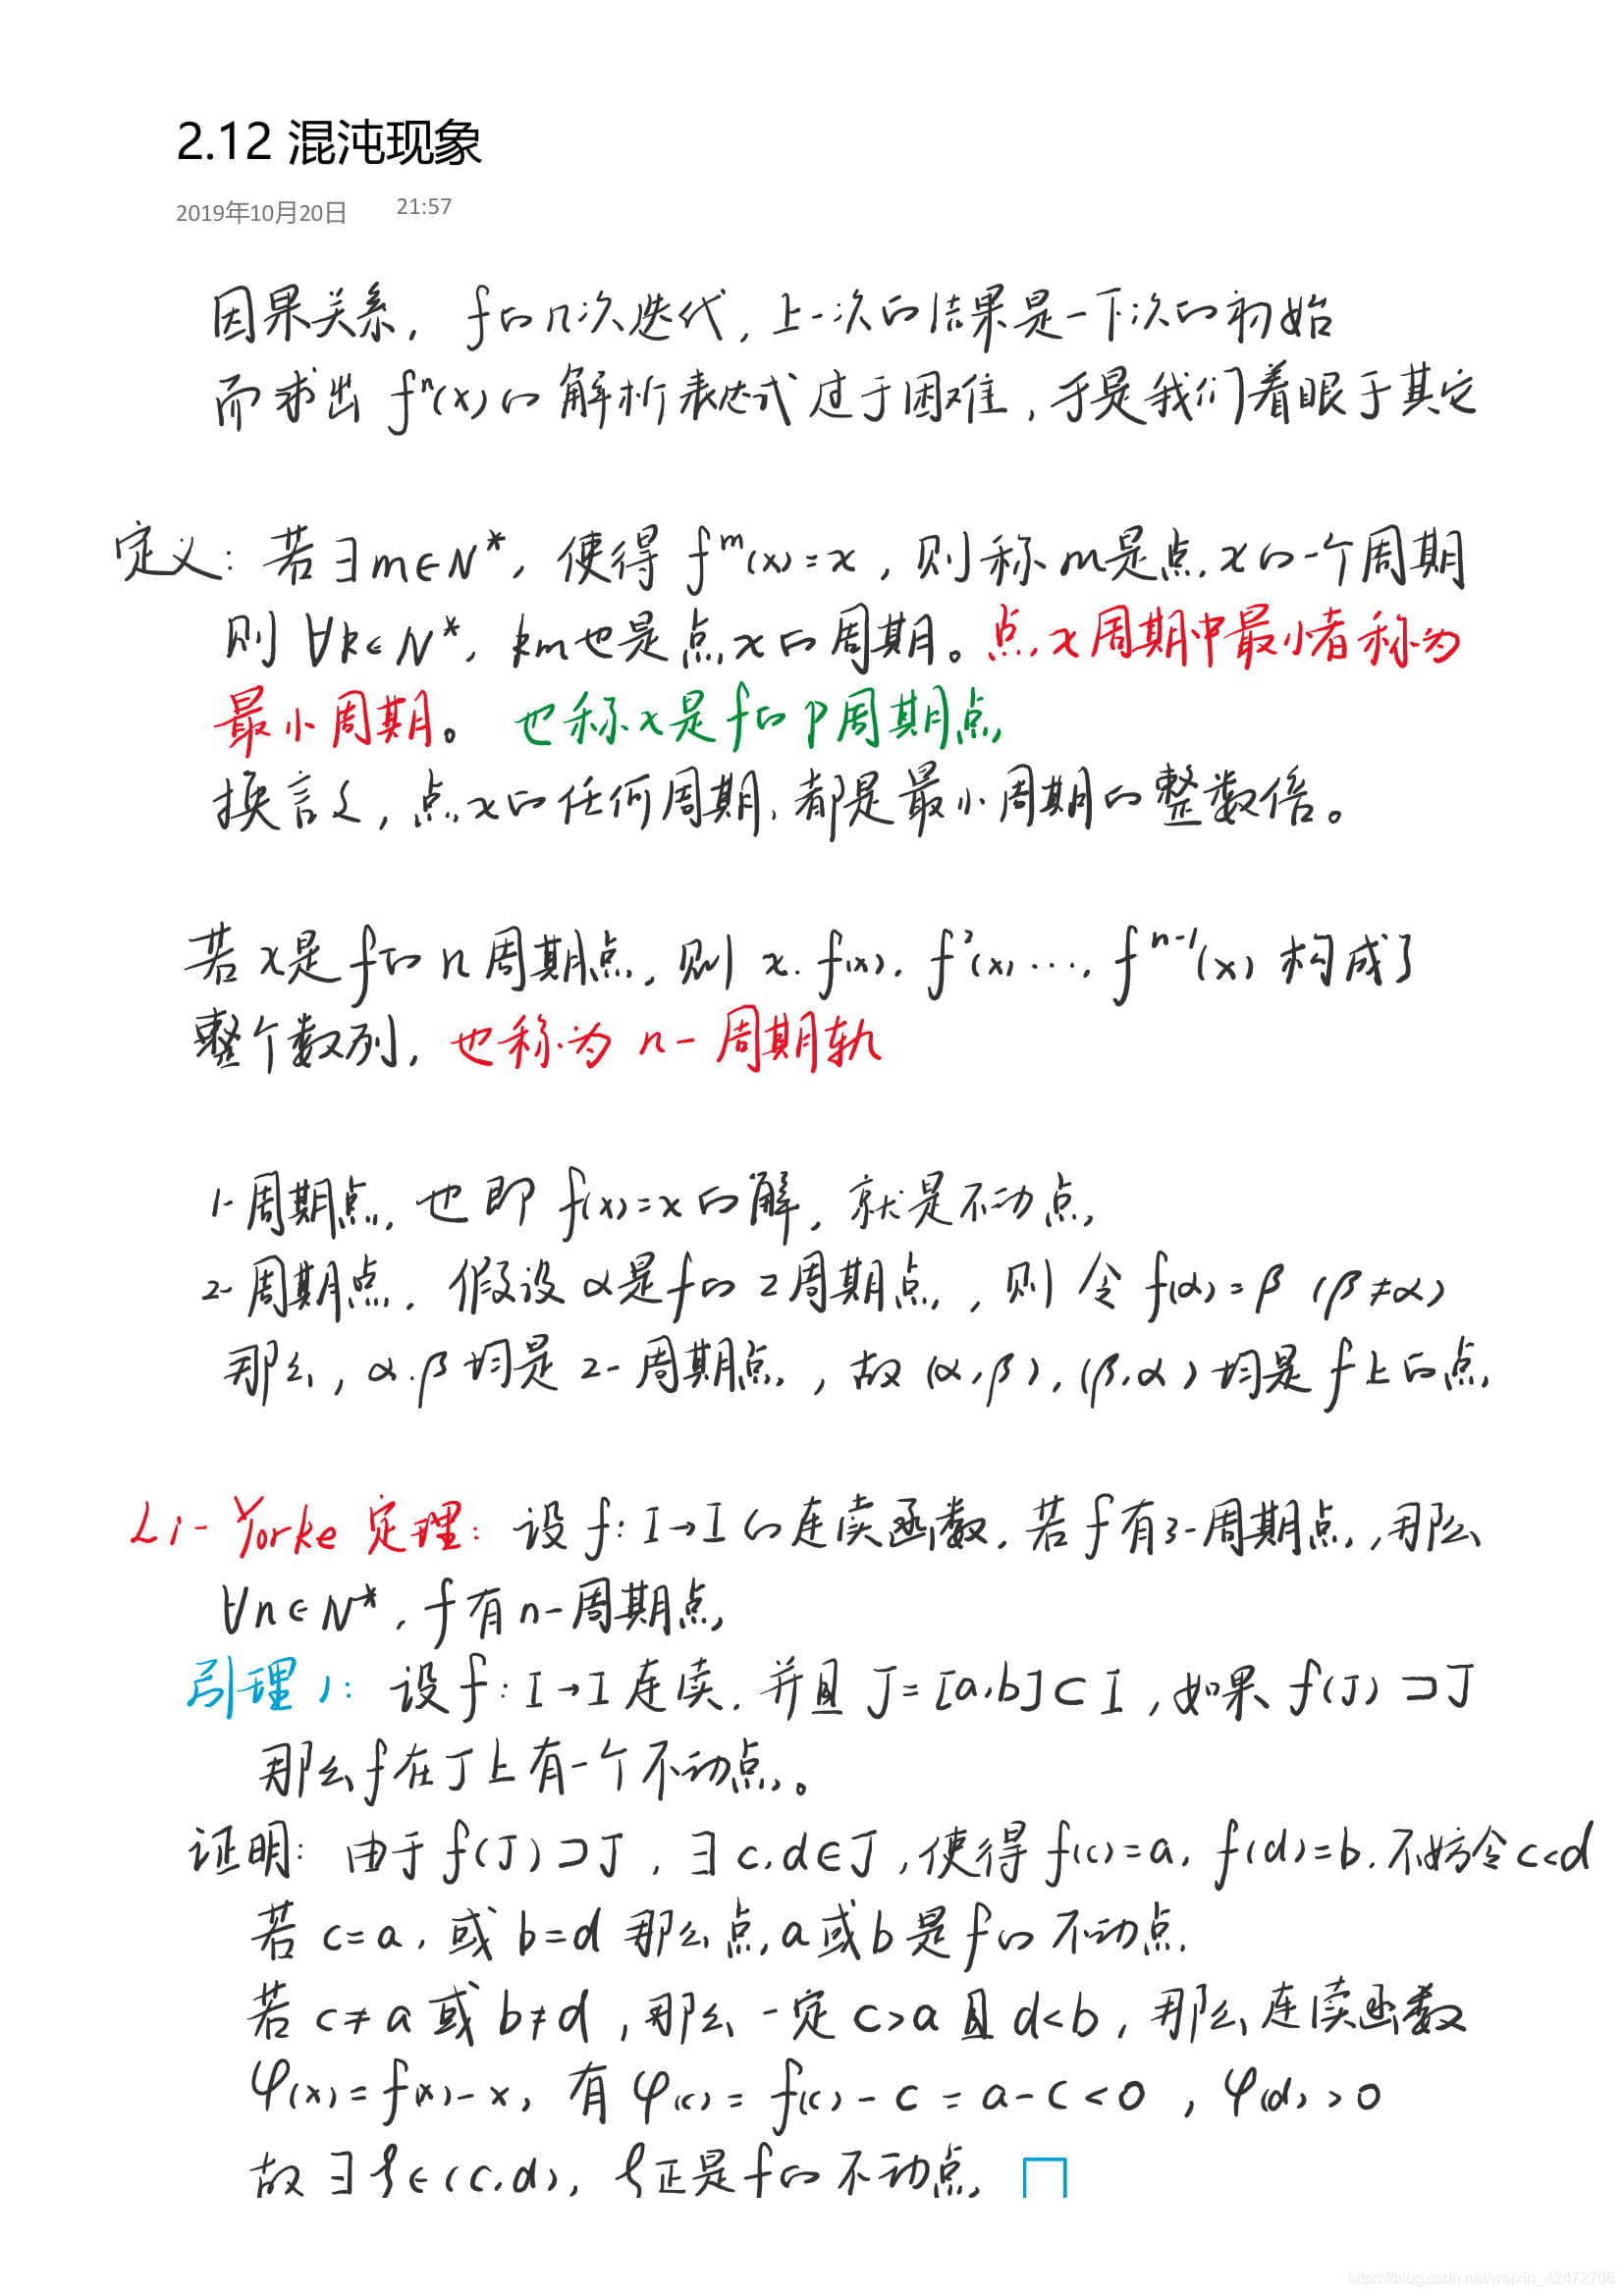 2.12 混沌现象
2019年10月20日 21:57
因果关系, f的n次迭代, 上一次的结果是一下次的初始
而求出 fⁿ(x) 的解析表达式过于困难, 于是我们着眼于其它
定义: 若∃m∈N*, 使得 fᵐ(x)=x, 则称m是点x的一个周期
则 ∀k∈N*, km也是点x的周期。点x周期中最小者称为
最小周期。 也称x是f的p周期点
换言之, 点x的任何周期, 都是最小周期的整数倍。
若x是f的n周期点, 则 x, f(x), f²(x), …, fⁿ⁻¹(x) 构成了
整个数列, 也称为 n-周期轨
1-周期点, 也即 f(x)=x的解, 就是不动点
2-周期点, 假设α是f的2周期点, 则令 f(α)=β (β≠α)
那么, α,β均是2-周期点, 故 (α,β), (β,α) 均是f上的点
Li-Yorke 定理: 设f: I→I的连续函数, 若f有3-周期点, 那么
∀n∈N*, f有n-周期点
引理1: 设f: I→I连续, 并且 J=[a,b]⊂I, 如果 f(J)⊃J
那么f在J上有一个不动点。
证明: 由于f(J)⊃J, ∃c,d∈J, 使得 f(c)=a, f(d)=b, 不妨令c<d
若 c=a, 或 b=d 那么点a或b是f的不动点
若 c≠a 或 b≠d, 那么一定 c>a 且 d<b, 那么连续函数
φ(x)=f(x)-x, 有 φ(c)=f(c)-c=a-c<0, φ(d)>0
故∃ξ∈(c,d), ξ正是f的不动点 □
https://blog.csdn.net/weixin_42472706